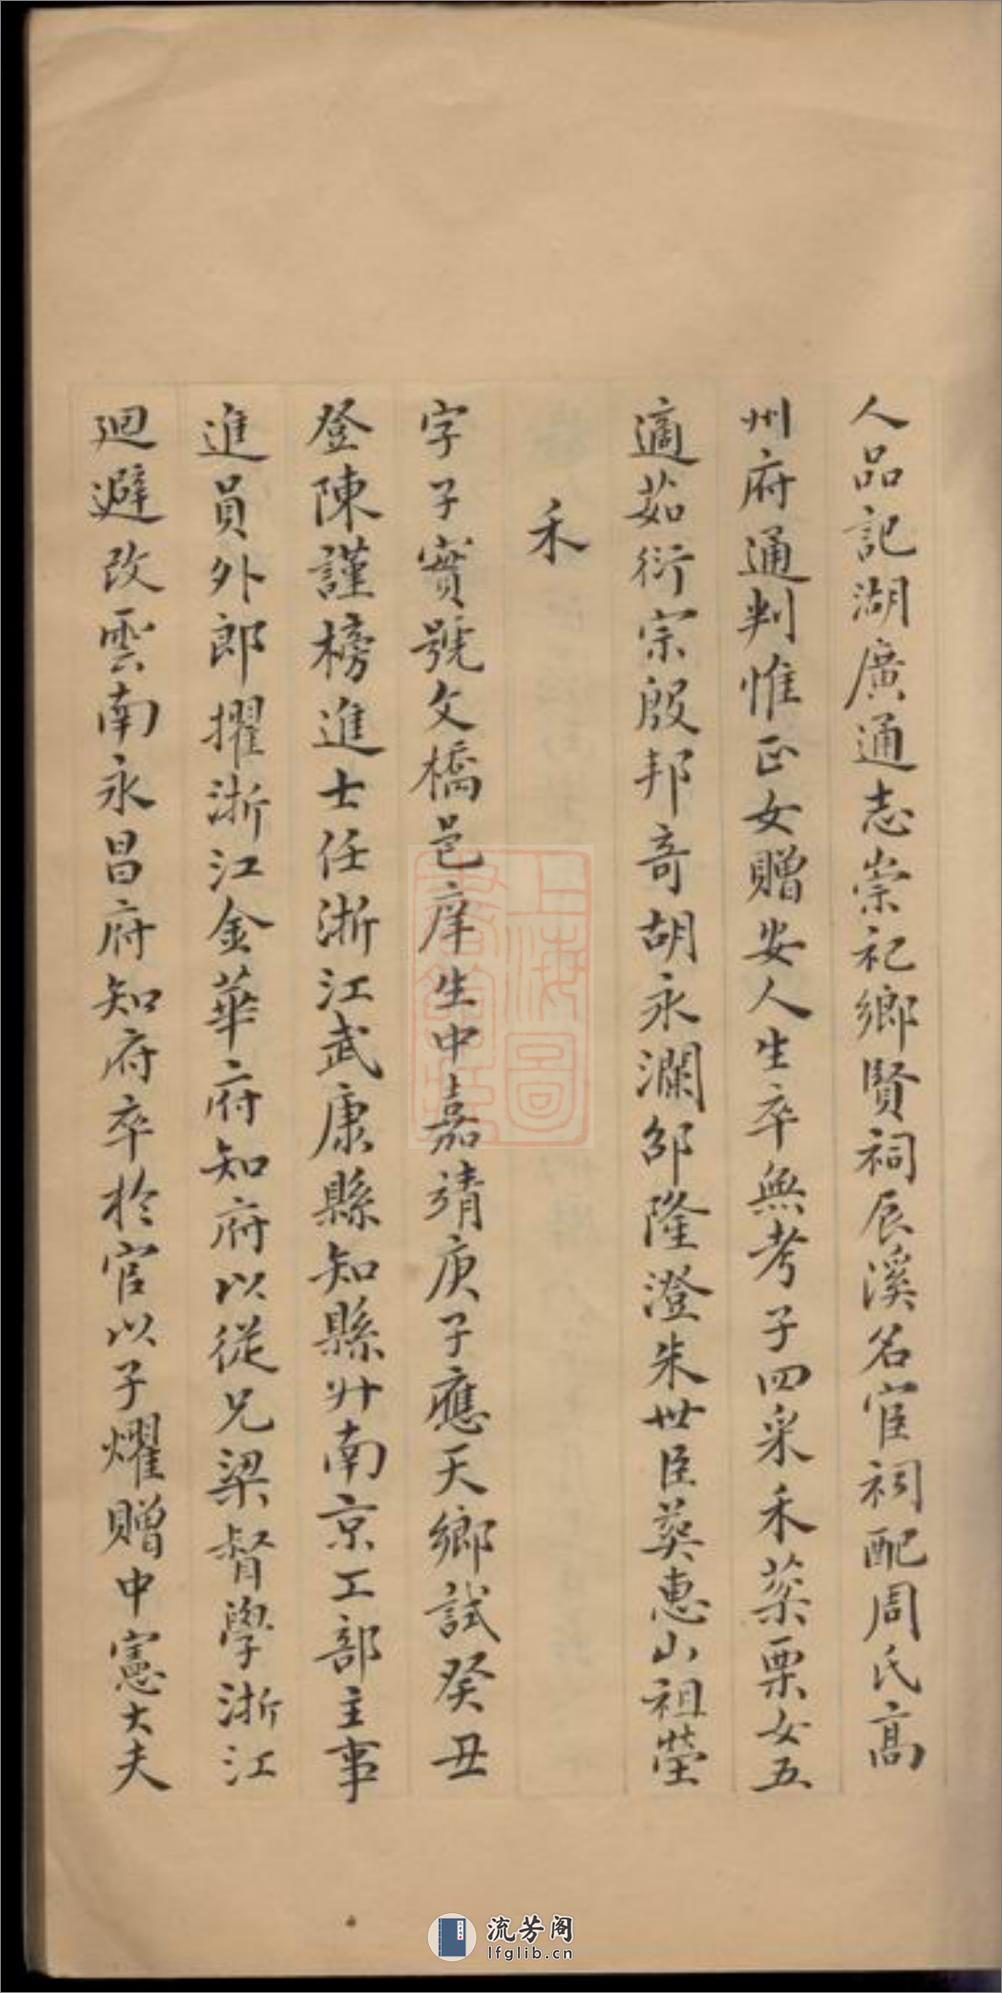 人品記湖廣通志崇祀鄉賢祠辰溪名宦祠配周氏高
州府通判惟正女贈安人生卒無考子四采禾蕖栗女五
適茹衍宗殷邦奇胡永瀾邵隆澄朱世臣葬惠山祖塋
禾
字子實號文橋邑庠生中嘉靖庚子應天鄉試癸丑
登陳謹榜進士任浙江武康縣知縣升南京工部主事
進員外郎擢浙江金華府知府以從兄梁督學浙江
迴避改雲南永昌府知府卒於官以子燿贈中憲大夫
上海圖書館藏
流芳阁
lfglib.cn